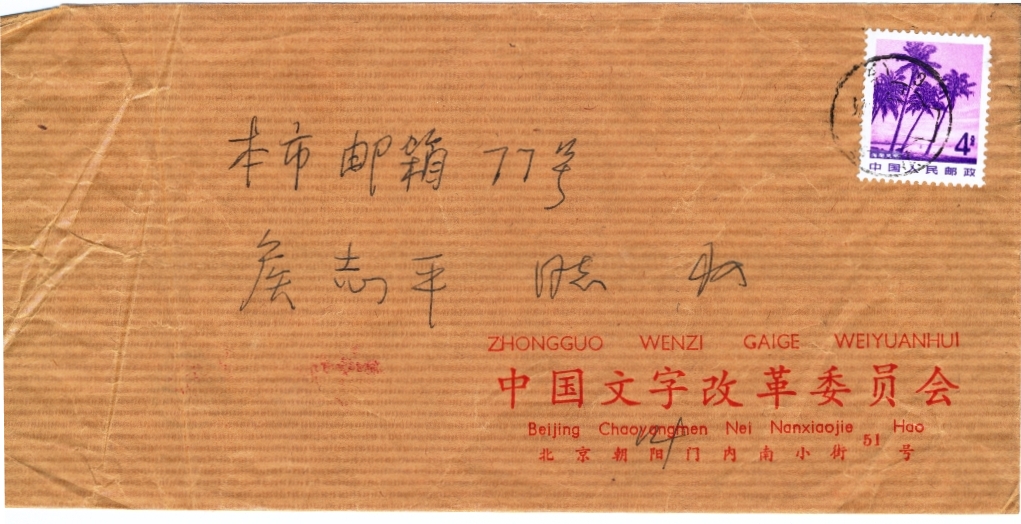 本市邮箱 77号
侯志平 同志 收
4分
中国人民邮政
ZHONGGUO WENZI GAIGE WEIYUANHUI
中国文字改革委员会
Beijing Chaoyangmen Nei Nanxiaojie 51 Hao
北京朝阳门内南小街 51 号